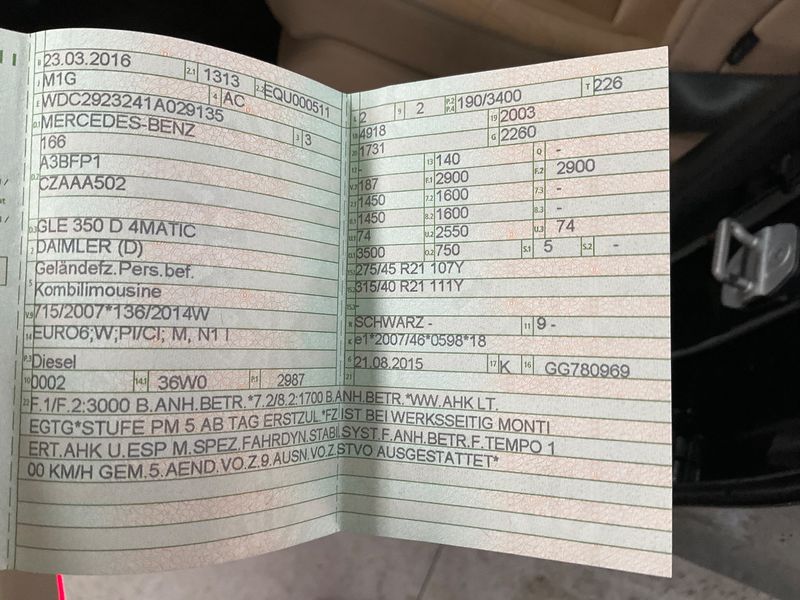 B 23.03.2016 2.1 1313 2.2 EQU000511
J M1G 4 AC
E WDC2923241A029135
D.1 MERCEDES-BENZ 3 3
166
D.2 A3BFP1
CZAAA502
D.3 GLE 350 D 4MATIC
2 DAIMLER (D)
5 Geländefz.Pers.bef.
Kombilimousine
V.9 715/2007*136/2014W
14 EURO6;W;PI/CI; M, N1 I
P.3 Diesel
10 0002 14.1 36W0 P.1 2987
L 2 9 2 P.2 P.4 190/3400 T 226
18 4918 19 2003
20 1731 G 2260
12 - 13 140 Q -
V.7 187 F.1 2900 F.2 2900
7.1 1450 7.2 1600 7.3 -
8.1 1450 8.2 1600 8.3 -
U.1 74 U.2 2550 U.3 74
O.1 3500 O.2 750 S.1 5 S.2 -
15.1 275/45 R21 107Y
15.2 315/40 R21 111Y
15.3 -
R SCHWARZ - 11 9 -
K e1*2007/46*0598*18
6 21.08.2015 17 K 16 GG780969
21
22 F.1/F.2:3000 B.ANH.BETR.*7.2/8.2:1700 B.ANH.BETR.*WW.AHK LT.
EGTG*STUFE PM 5 AB TAG ERSTZUL.*FZ IST BEI WERKSSEITIG MONTI
ERT.AHK U.ESP M.SPEZ.FAHRDYN.STABILSYST.F.ANH.BETR.F.TEMPO 1
00 KM/H GEM.5.AEND.VO.Z.9.AUSN.VO.Z.STVO AUSGESTATTET*